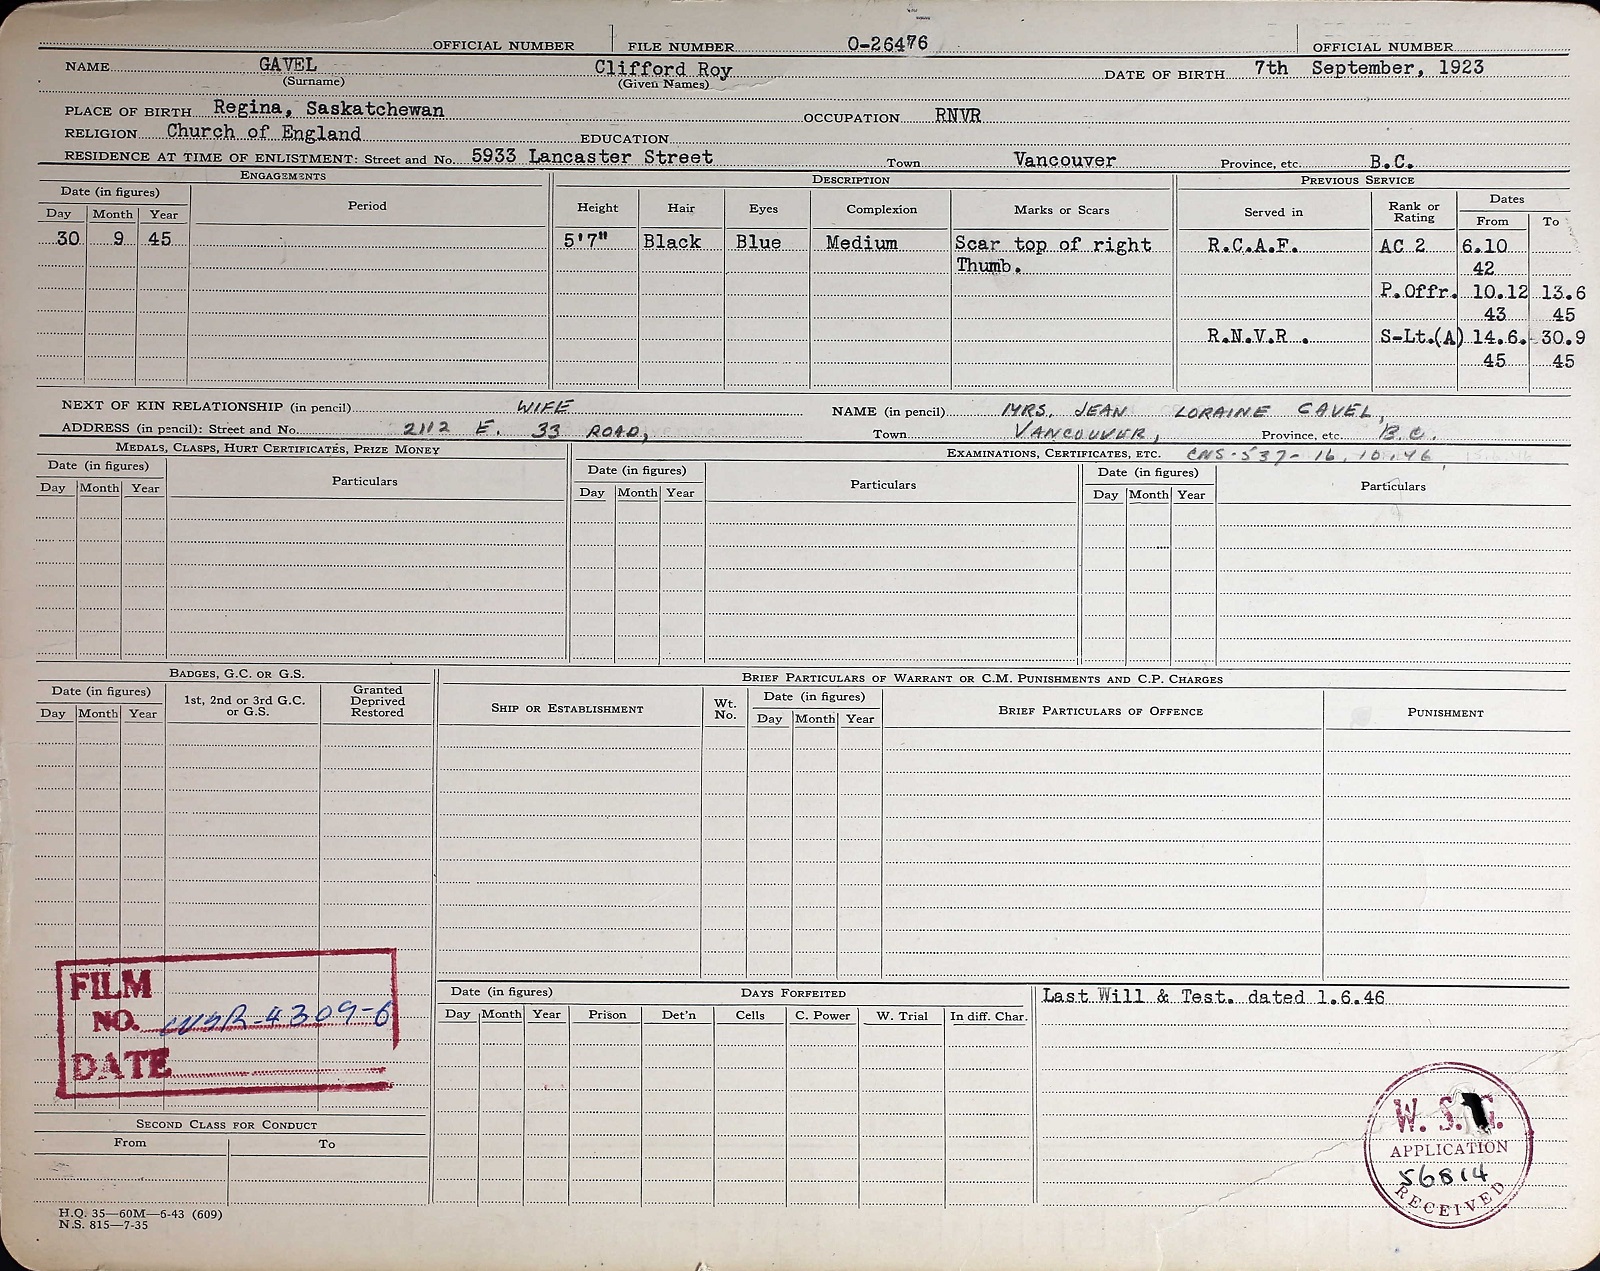 OFFICIAL NUMBER FILE NUMBER O-26476 OFFICIAL NUMBER
NAME GAVEL Clifford Roy DATE OF BIRTH 7th September, 1923
(Surname) (Given Names)
PLACE OF BIRTH Regina, Saskatchewan OCCUPATION RNVR
RELIGION Church of England EDUCATION
RESIDENCE AT TIME OF ENLISTMENT: Street and No. 5933 Lancaster Street Town Vancouver Province, etc. B.C.
ENGAGEMENTS DESCRIPTION PREVIOUS SERVICE
Date (in figures) Period Height Hair Eyes Complexion Marks or Scars Served in Rank or Rating Dates
Day Month Year From To
30 9 45 5'7" Black Blue Medium Scar top of right R.C.A.F. AC 2 6.10
Thumb. 42
P.Offr. 10.12 13.6
43 45
R.N.V.R . S-Lt.(A) 14.6. 30.9
45 45
NEXT OF KIN RELATIONSHIP (in pencil) WIFE NAME (in pencil) MRS. JEAN LORAINE GAVEL,
ADDRESS (in pencil): Street and No. 2112 E. 33 ROAD, Town VANCOUVER, Province, etc. B.C.
MEDALS, CLASPS, HURT CERTIFICATES, PRIZE MONEY EXAMINATIONS, CERTIFICATES, ETC. CNS-537-16.10.46
Date (in figures) Particulars Date (in figures) Particulars Date (in figures) Particulars
Day Month Year Day Month Year Day Month Year
BADGES, G.C. OR G.S. BRIEF PARTICULARS OF WARRANT OR C.M. PUNISHMENTS AND C.P. CHARGES
Date (in figures) 1st, 2nd or 3rd G.C. or G.S. Granted Deprived Restored SHIP OR ESTABLISHMENT Wt. No. Date (in figures) BRIEF PARTICULARS OF OFFENCE PUNISHMENT
Day Month Year Day Month Year
FILM
NO. -4309-6
DATE
Date (in figures) DAYS FORFEITED Last Will & Test. dated 1.6.46
Day Month Year Prison Det'n Cells C. Power W. Trial In diff. Char.
W. S. G.
APPLICATION
56814
RECEIVED
SECOND CLASS FOR CONDUCT
From To
H.Q. 35—60M—6-43 (609)
N.S. 815—7-35